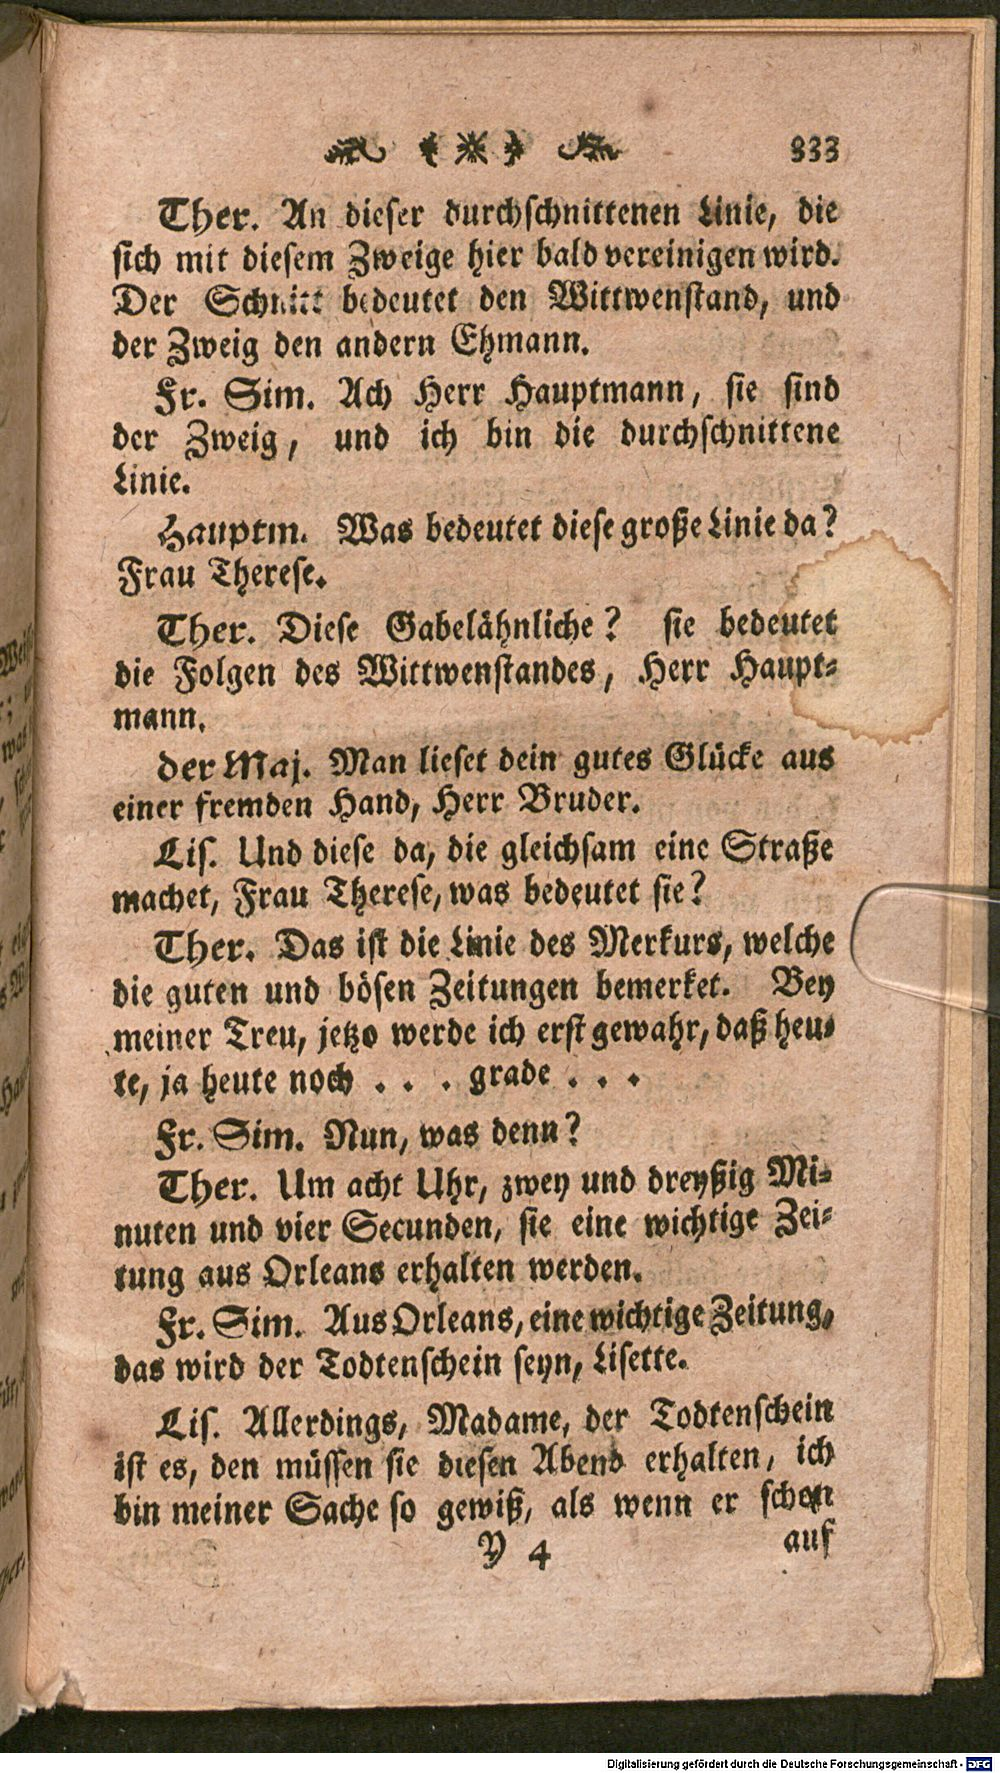 333
Ther. An dieser durchschnittenen Linie, die
sich mit diesem Zweige hier bald vereinigen wird.
Der Schnitt bedeutet den Wittwenstand, und
der Zweig den andern Ehmann.
Fr. Sim. Ach Herr Hauptmann, sie sind
der Zweig, und ich bin die durchschnittene
Linie.
Hauptm. Was bedeutet diese große Linie da?
Frau Therese.
Ther. Diese Gabelähnliche? sie bedeutet
die Folgen des Wittwenstandes, Herr Haupt-
mann.
der Maj. Man lieset dein gutes Glücke aus
einer fremden Hand, Herr Bruder.
Lis. Und diese da, die gleichsam eine Straße
machet, Frau Therese, was bedeutet sie?
Ther. Das ist die Linie des Merkurs, welche
die guten und bösen Zeitungen bemerket. Bey
meiner Treu, jetzo werde ich erst gewahr, daß heu-
te, ja heute noch . . . grade . . .
Fr. Sim. Nun, was denn?
Ther. Um acht Uhr, zwey und dreyßig Mi-
nuten und vier Secunden, sie eine wichtige Zei-
tung aus Orleans erhalten werden.
Fr. Sim. Aus Orleans, eine wichtige Zeitung,
das wird der Todtenschein seyn, Lisette.
Lis. Allerdings, Madame, der Todtenschein
ist es, den müssen sie diesen Abend erhalten, ich
bin meiner Sache so gewiß, als wenn er schon
Y 4 auf
Digitalisierung gefördert durch die Deutsche Forschungsgemeinschaft - DFG